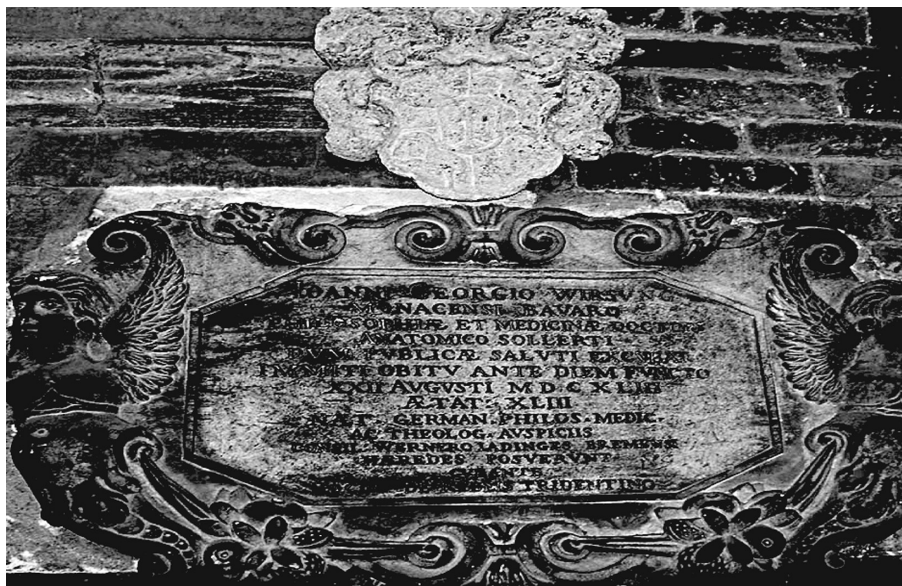 IOANNI GEORGIO WIRSVNG
MONACENSI BAVARO
PHILOSOPHIÆ ET MEDICINÆ DOCTORI
ANATOMICO SOLLERTI
DVM PVBLICÆ SALVTI
IMMITI OBITV ANTE DIEM FVNCTO
XXII AVGVSTI M D C XLIII
ÆTAT· XLIII
NAT· GERMAN· PHILOS· MEDIC·
AC THEOLOG· AVSPICIIS
CONSIL· WERNERO LADINGES BREMENSE
HÆREDES POSVERVNT
CVRANTE
TRIDENTINO